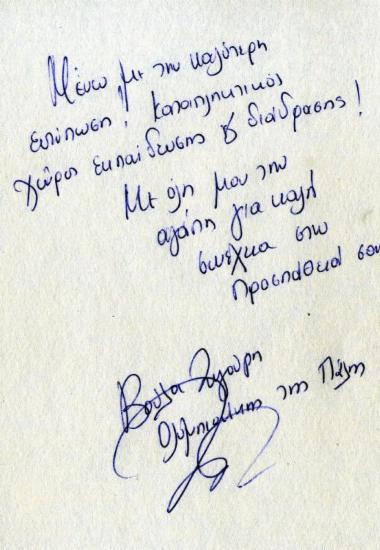 Μένω με την καλύτερη
εντύπωση! Καταπληκτικός
χώρος εκπαίδευσης & διάδρασης!
Με όλη μου την
αγάπη για καλή
συνέχεια στην
προσπάθειά σου
Βούλα Ζυγούρη
Ολυμπιονίκης της Πάλης